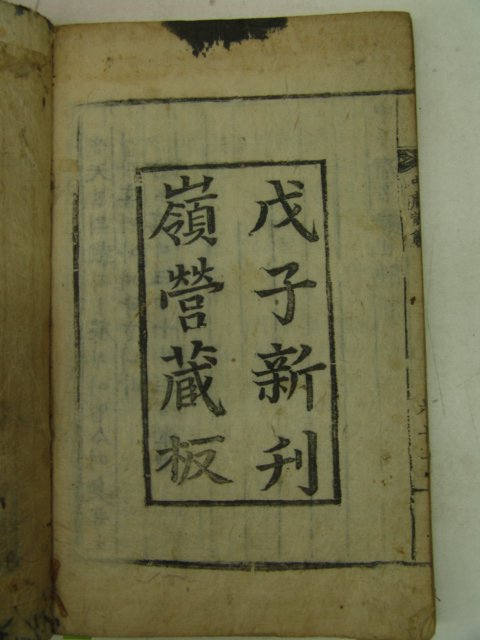 戊子新刊
嶺營蔵板